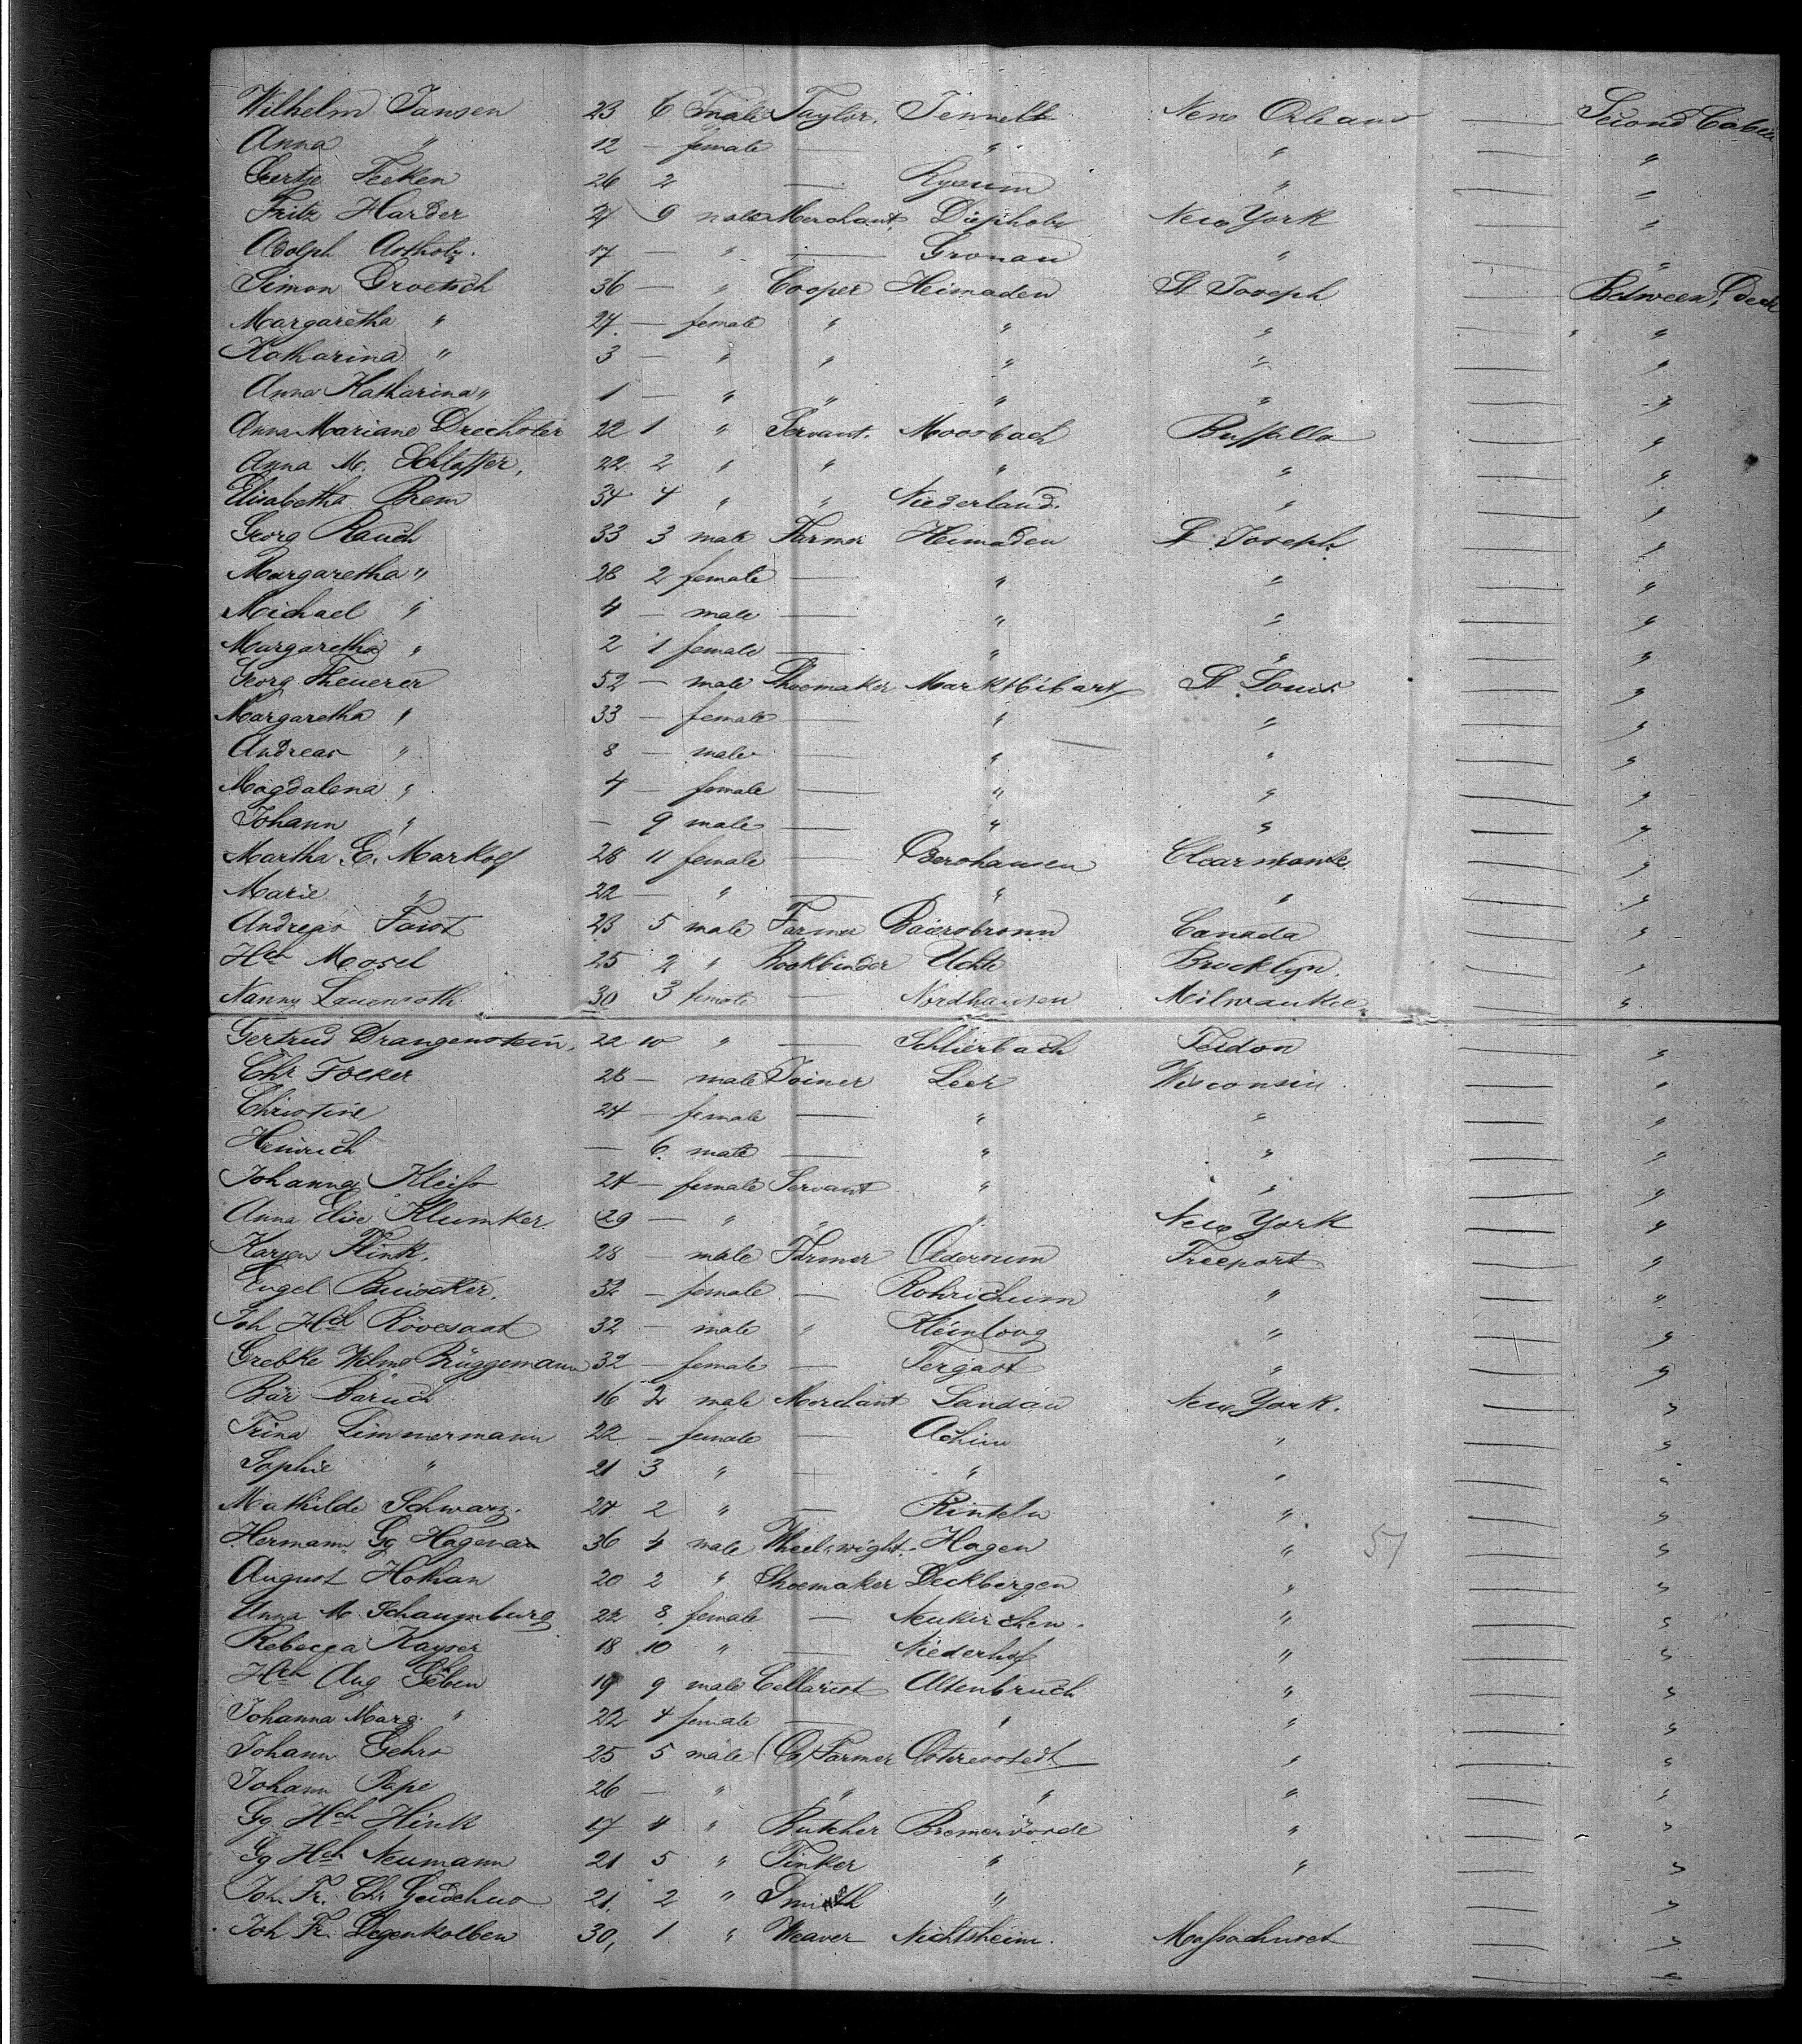 Wilhelm Jansen 23 6 male Taylor. Jennelt New Orleans — Second Cabin
Anna " 12 — female — " " — "
Geertje Feeken 26 2 — Rysum " — "
Fritz Harder 21 9 male Merchant. Diepholz New York — "
Adolph Artholz. 17 — " — Gronau " — "
Simon Groetsch 36 — " Cooper Heimaden St Joseph — Between, Deck
Margaretha " 27. — female " " " — "
Katharina " 3 — " " " " — "
Anna Katharina " 1 — " " " " — "
Anna Mariane Drechsler 22 1 " Servant. Moosbach Buffallo — "
Anna M. Schlaffer, 22 2 " " " " — "
Elisabetha Prem 34 4 " " Niederland. " — "
Georg Rauch 33 3 male Farmer Heimaden St. Joseph. — "
Margaretha " 28 2 female — " " — "
Michael " 4 — male — " " — "
Margaretha " 2 1 female — " " — "
Georg Theuerer 52 — male Shoemaker Marktbibart St. Louis — "
Margaretha " 33 — female — " " — "
Andreas " 8 — male — " " — "
Magdalena " 4 — female — " " — "
Johann " — 9 male — " " — "
Martha E. Markolf 28 11 female — Obershausen — "
Marie " 22 — " — " " — "
Andreas Faist 23 5 male Farmer Baiersbronn Canada — "
Hch Mosel 25 2 " Bookbinder Uchte Brooklyn. — "
Nanny Lauenroth 30 3 female — Nordhausen Milwaukee — "
Gertrud Drangenstein. 22 10 " — Schlierbach — "
Chr Föcker 28 — male Joiner Leer Wisconsin — "
Christine 24 — female — " " — "
Heinrich — 6. male — " " — "
Johanna Kleiss 24 — female Servant " " — "
Anna Elise Klumker 29 — " " " New York — "
Karjen Flink, 28 — male Farmer Oldersum Freeport — "
Engel 32 — female — Rohrichum " — "
Joh Hch Rövesaat 32 — male " Kleinloog " — "
Grebke Wilms Brüggemann 32 — female — Tergast " — "
Bär Baruch 16 2 male Merchant Landau New York. — "
Trina Zimmermann 22 — female — Achim " — "
Sophie " 21 3 " — " " — "
Mathilde Schwarz. 24 2 " — Rinteln " — "
Hermann Gg Hagenau 36 4 male Wheelwright. Hagen " 57 — "
August Hothan 20 2 " Shoemaker Deckbergen " — "
Anna M. Schaumburg 22 8 female — Neukirchen. " — "
Rebecca Kayser 18 10 " — Niederhof " — "
Hch Aug 19 9 male Cellarist Altenbruch " — "
Johanna Marg. " 22 4 female — " " — "
Johann Gehrs 25 5 male Farmer " — "
Johann Pape 26 — " " " " — "
Gg Hch Hink 17 4 " Butcher Bremervörde " — "
Gg Hch Neumann 21 5 " Tinker " " — "
Joh. Fr. Chr 21. 2 " Smith " — "
Joh Fr. Degenkolben 30, 1 " Weaver Nichtsheim. Massachuset — "
— "